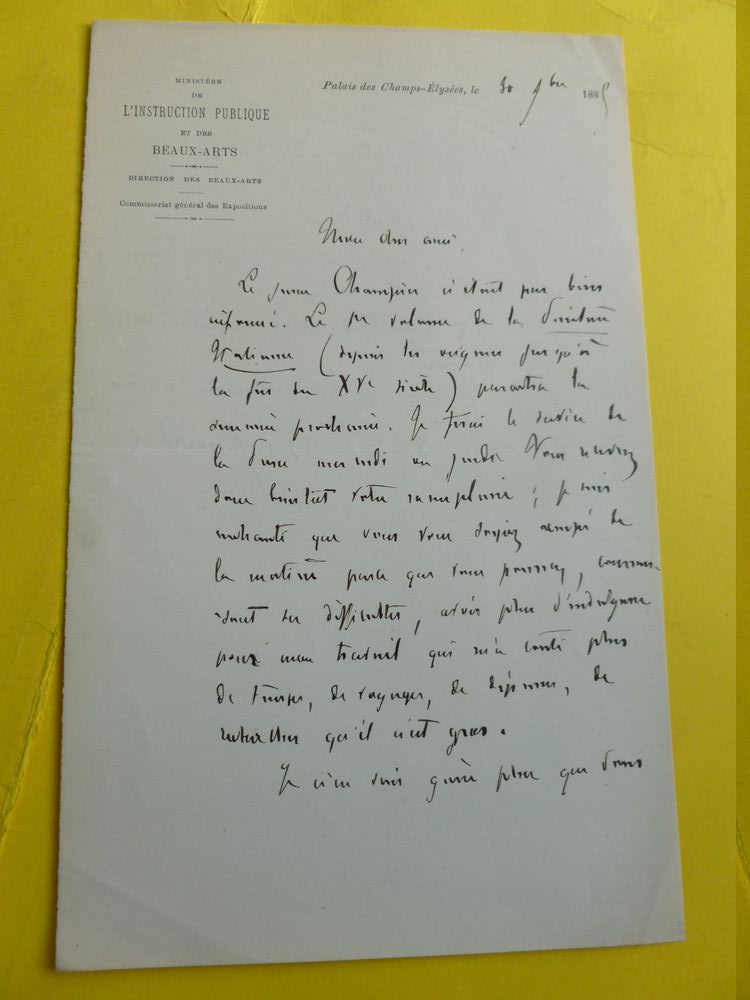 MINISTÈRE
DE
L'INSTRUCTION PUBLIQUE
ET DES
BEAUX-ARTS
DIRECTION DES BEAUX-ARTS
Commissariat général des Expositions
Palais des Champs-Élysées, le 30 9bre 1885
Mon cher ami,
Le jeune Champier n'était pas bien
informé. Le 1er volume de la Peinture
Italienne (depuis les origines jusqu'à
la fin du XVe siècle) paraîtra la
semaine prochaine. Je ferai le service de
la presse mardi ou jeudi. Vous recevrez
donc bientôt votre exemplaire ; je suis
enchanté que vous vous soyez occupé de
la matière parce que vous pourrez, connais-
sant les difficultés, avoir plus d'indulgence
pour mon travail qui m'a coûté plus
de temps, de voyages, de dépenses, de
recherches qu'il n'est gros.
Je n'en suis guère plus que vous